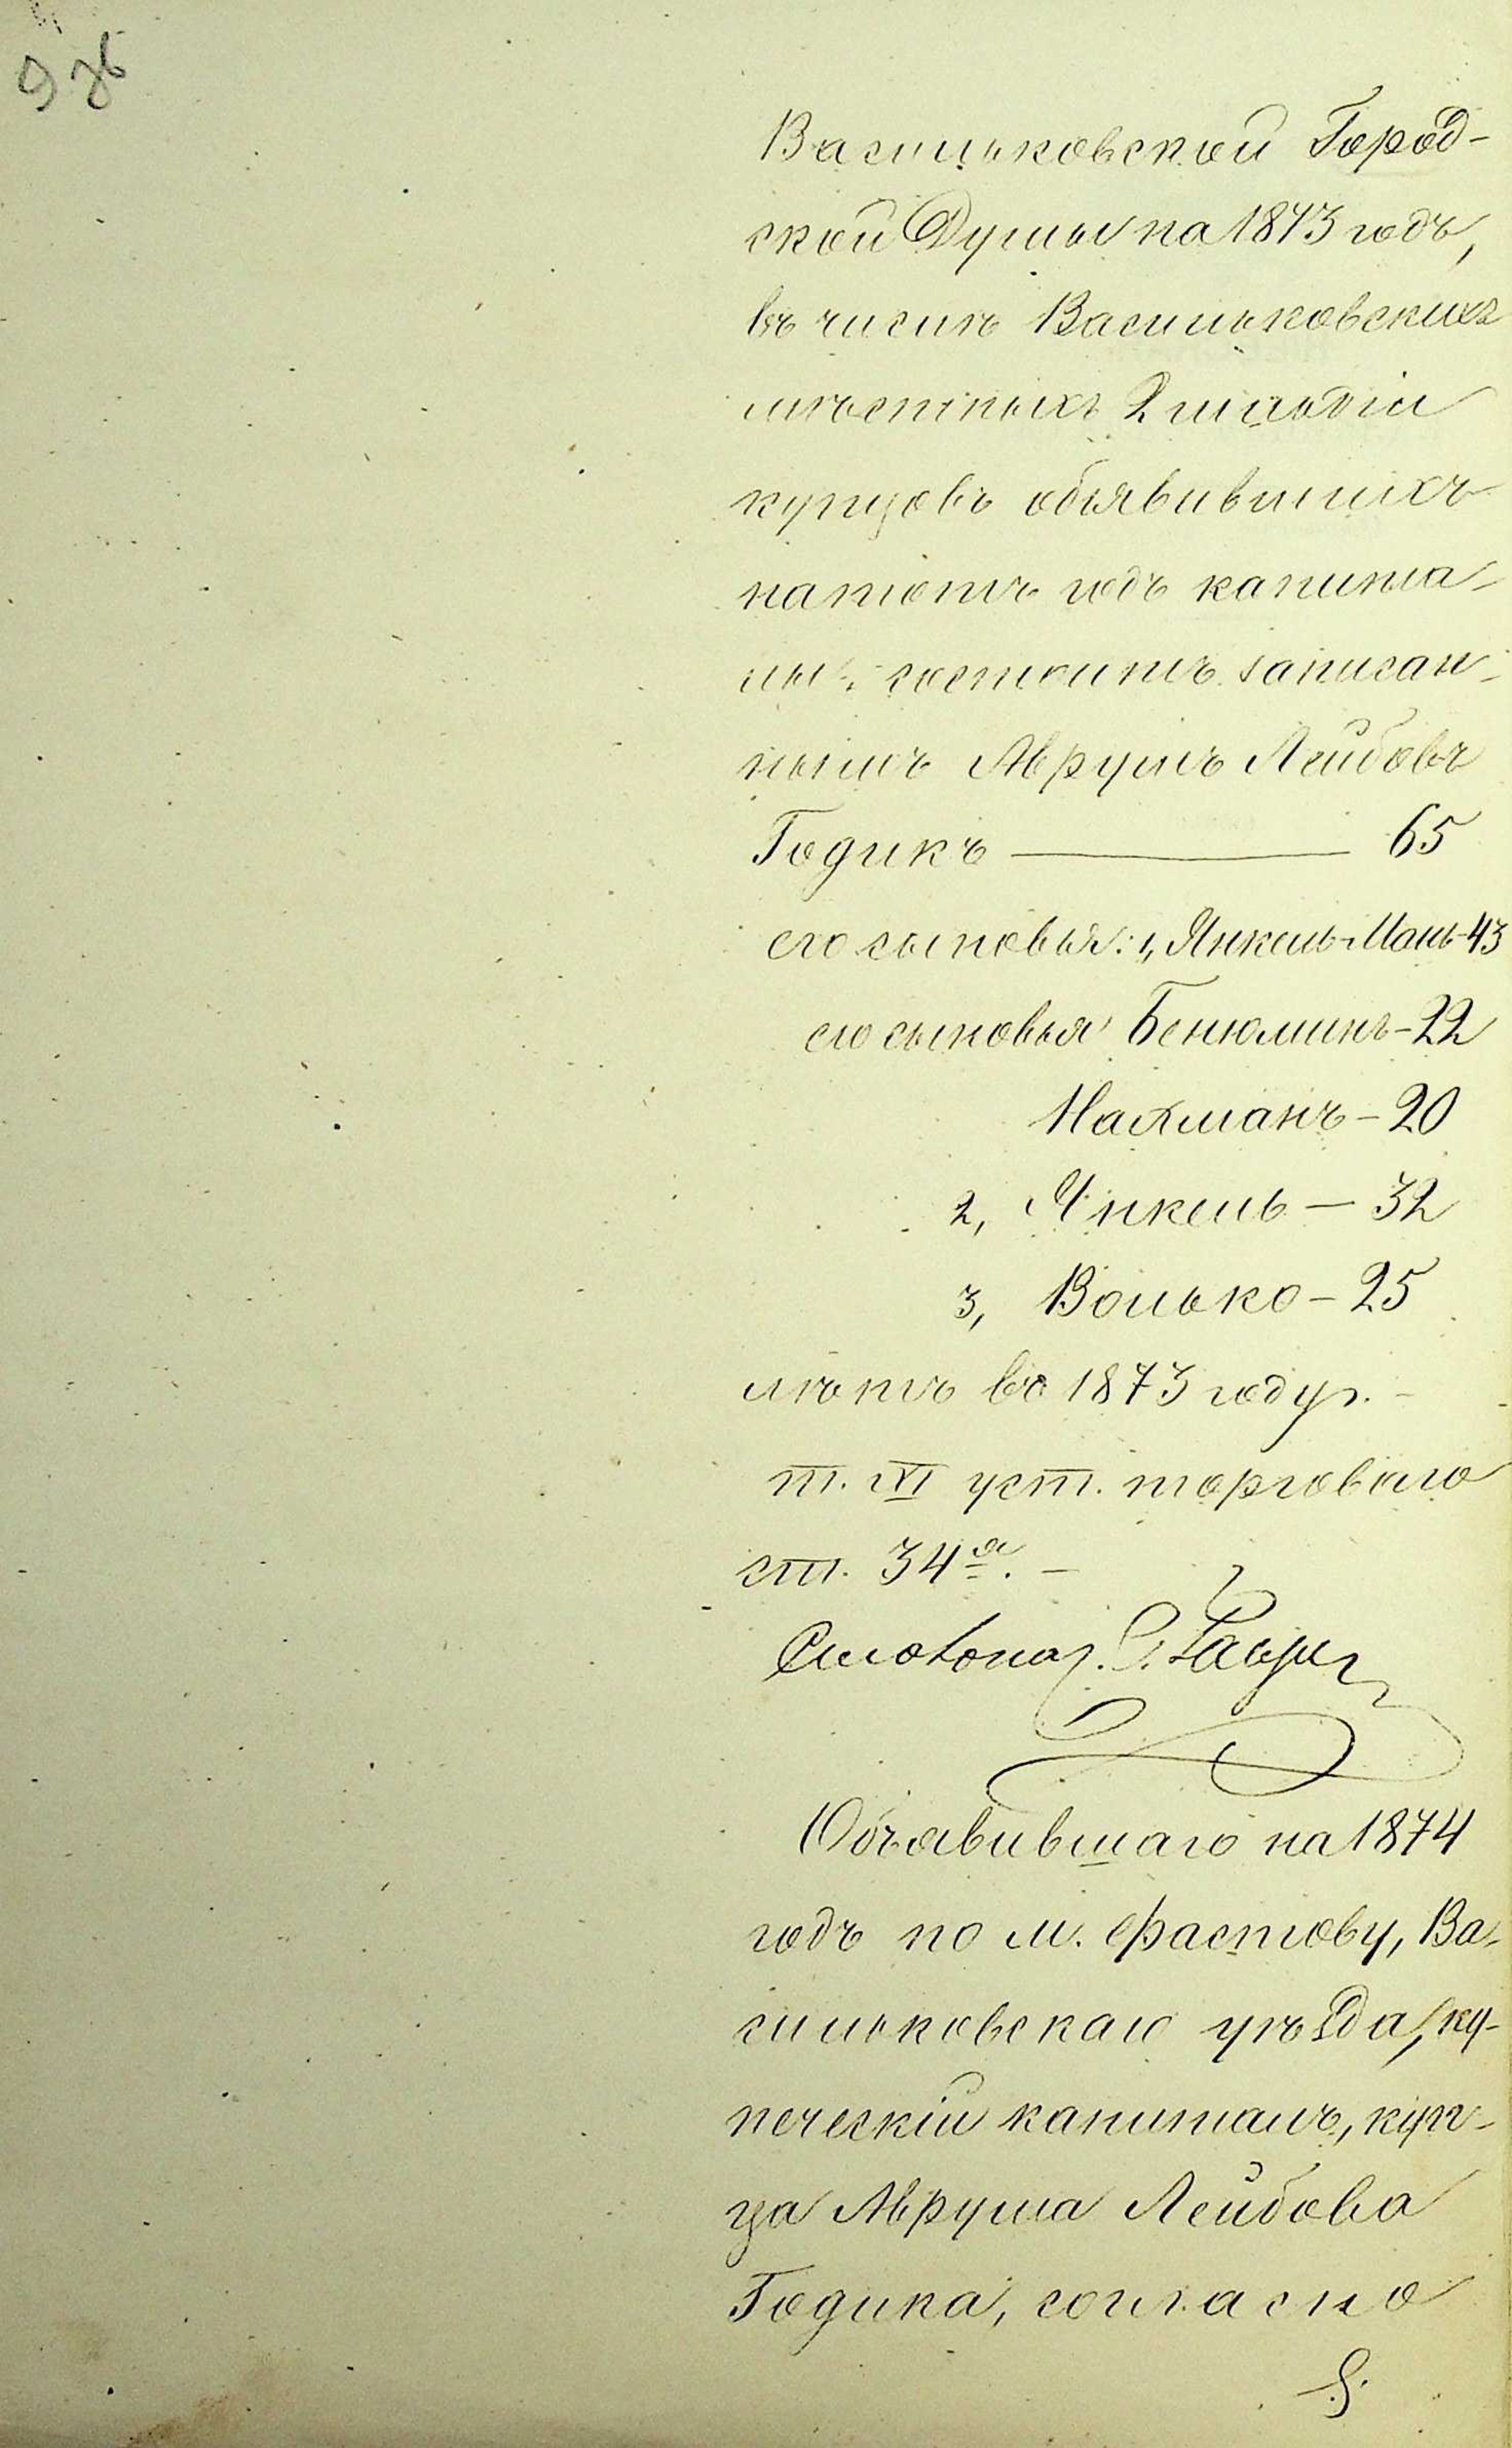 9 об
Васильковской Город-
ской Думы на 1873 годъ,
въ числѣ Васильковскихъ
мѣстныхъ 2 гильдіи
купцовъ объявившихъ
на тотъ годъ капита-
лы, состоитъ записан-
нымъ Аврумъ Лейбовъ
Годикъ — 65
его сыновья: 1, Янкель-Мошь-43
его сыновья Бенюминъ-22
Нахманъ-20
2, Янкель-32
3, Волько-25
лѣтъ въ 1873 году.-
т. XI уст. торговаго
ст. 34я.-
Столонач.
Объявившаго на 1874
годъ по м. Фастову, Ва-
сильковскаго уѣзда, ку-
печескій капиталъ, куп-
ца Аврума Лейбова
Годика, согласно